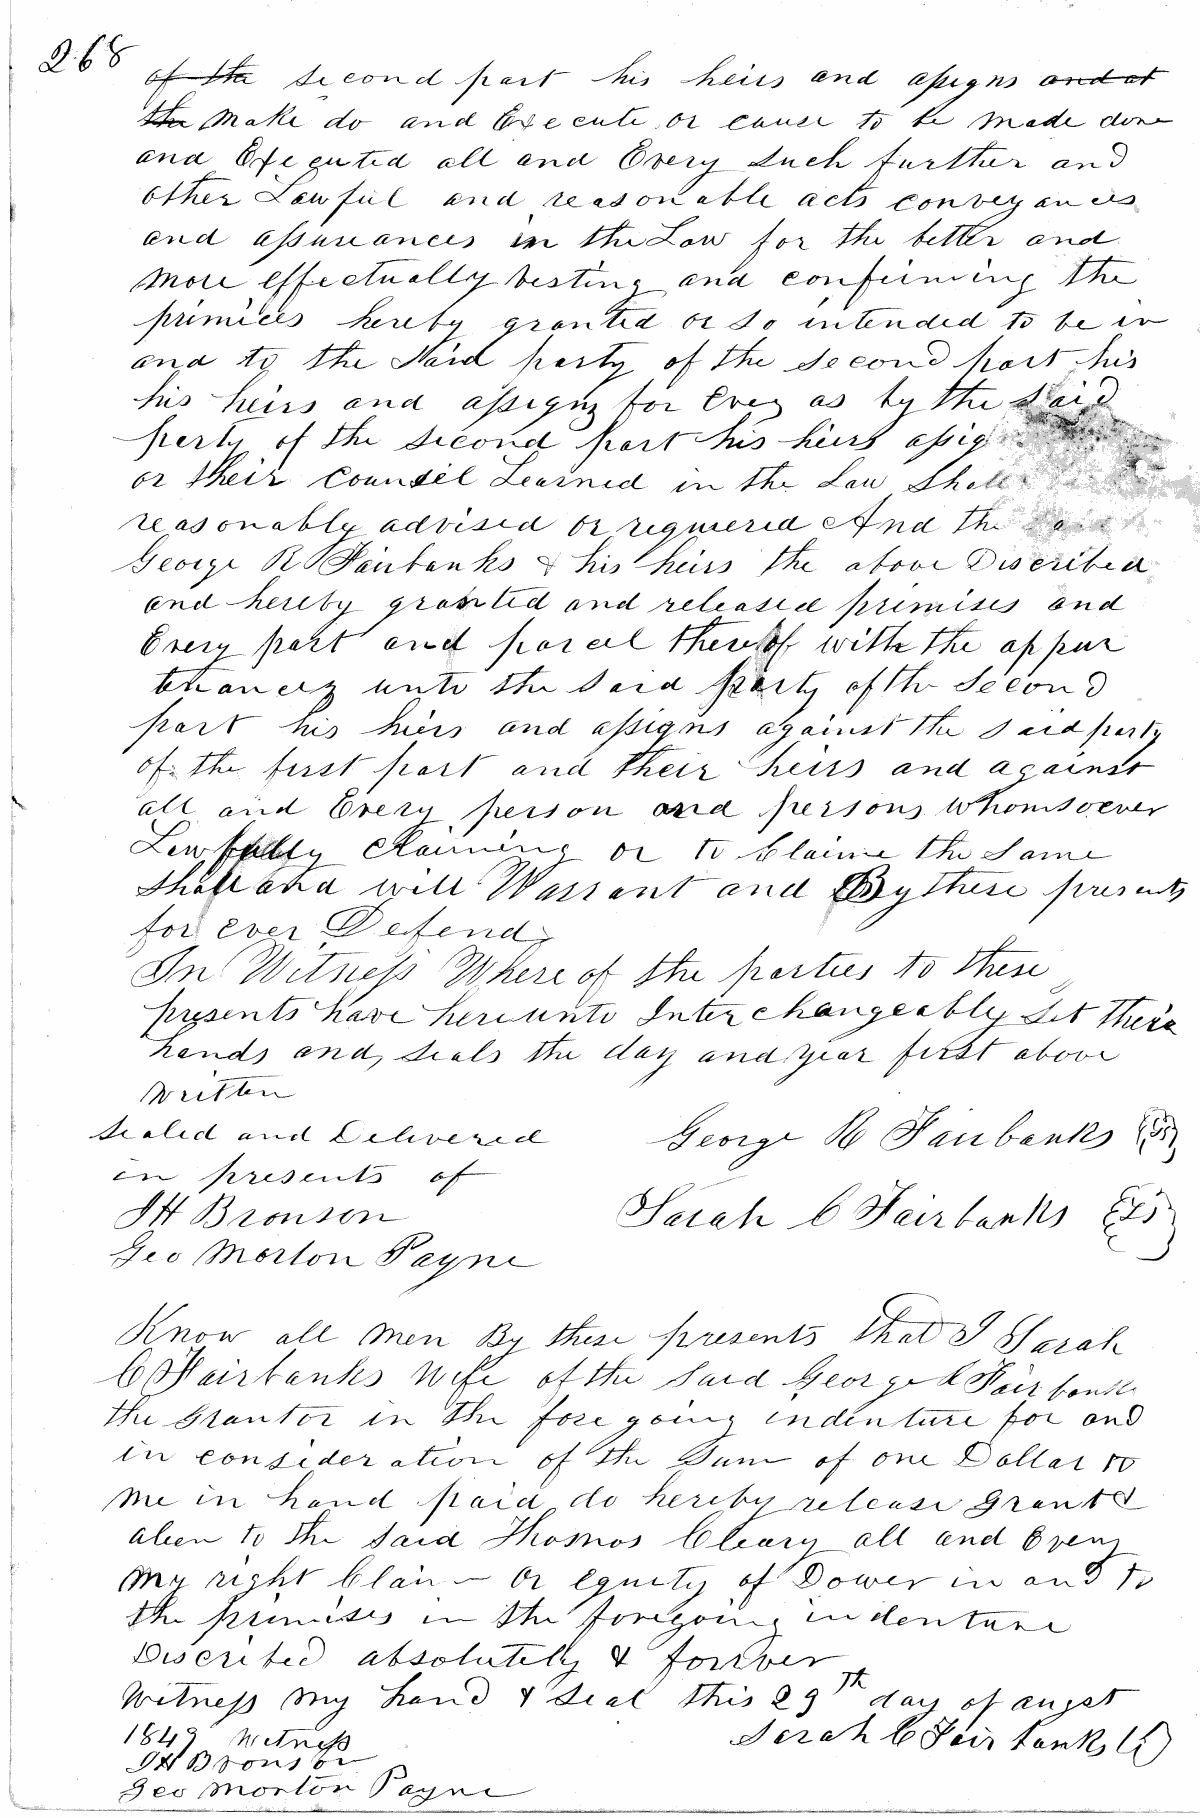 268
of the second part his heirs and assigns and at
the make do and Execute or cause to be made done
and Executed all and Every such further and
other Lawful and reasonable acts conveyances
and assurances in the Law for the better and
more effectually vesting and confirming the
primices hereby granted or so intended to be in
and to the said party of the second part his
his heirs and assigns for Ever as by the said
party of the second part his heirs assig
or their counsel Learned in the Law shall
reasonably advised or requiered And the said
George R Fairbanks & his heirs the above Discribed
and hereby granted and released primises and
Every part and parcel thereof with the appur
tenances unto the said party of the second
part his heirs and assigns against the said party
of the first part and their heirs and against
all and Every person and persons whomsoever
Lawfully claiming or to Claime the same
shall and will Warrant and By these presents
for ever Defend
In Witness Where of the parties to these
presents have hereunto Interchangeably set their
hands and seals the day and year first above
written
sealed and Delivered
in presents of
George R Fairbanks LS
JH Bronson
Sarah C Fairbanks LS
Geo Morton Payne
Know all men By these presents that I Sarah
C Fairbanks wife of the said George R Fairbanks
the Grantor in the foregoing indenture for and
in consideration of the sum of one Dollar to
me in hand paid do hereby release Grant &
alien to the said Thomos Cleary all and Every
my right Claim or equity of Dower in and to
the primises in the foregoing indenture
Discribed absolutely & forever
Witness my hand & seal this 29th day of augst
1849 Witness
Sarah C Fairbanks LS
JH Bronson
Geo Morton Payne